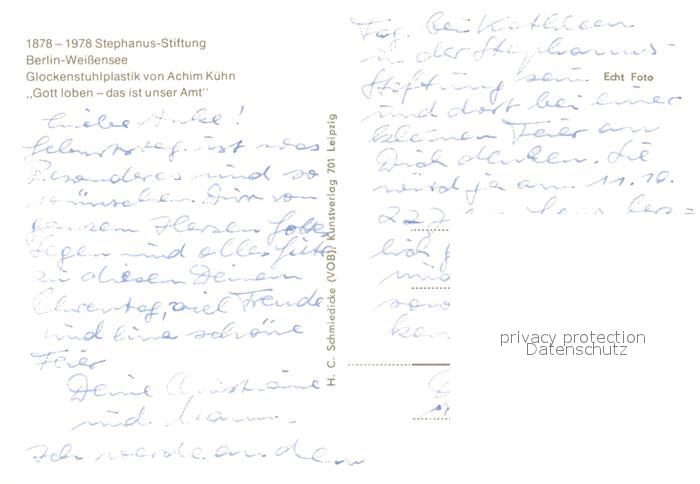 1878 – 1978 Stephanus-Stiftung
Berlin-Weißensee
Glockenstuhlplastik von Achim Kühn
„Gott loben – das ist unser Amt"
Liebe Anke!
Geburtstag ist was
Besonderes und so
wünschen Dir von
ganzem Herzen Gottes
Segen und alles Gute
zu diesem Deinem
Ehrentag, viel Freude
und eine schöne
Feier
Deine Christiane
und
Ich werde an dem
H. C. Schmiedicke (VOB), Kunstverlag 701 Leipzig
Tag bei Kathleen
in der Stephanus-
Stiftung sein
Echt Foto
und dort bei einer
kleinen Feier an
Dich denken. Sie
wird ja am 11.10.
22
lich
privacy protection
Datenschutz